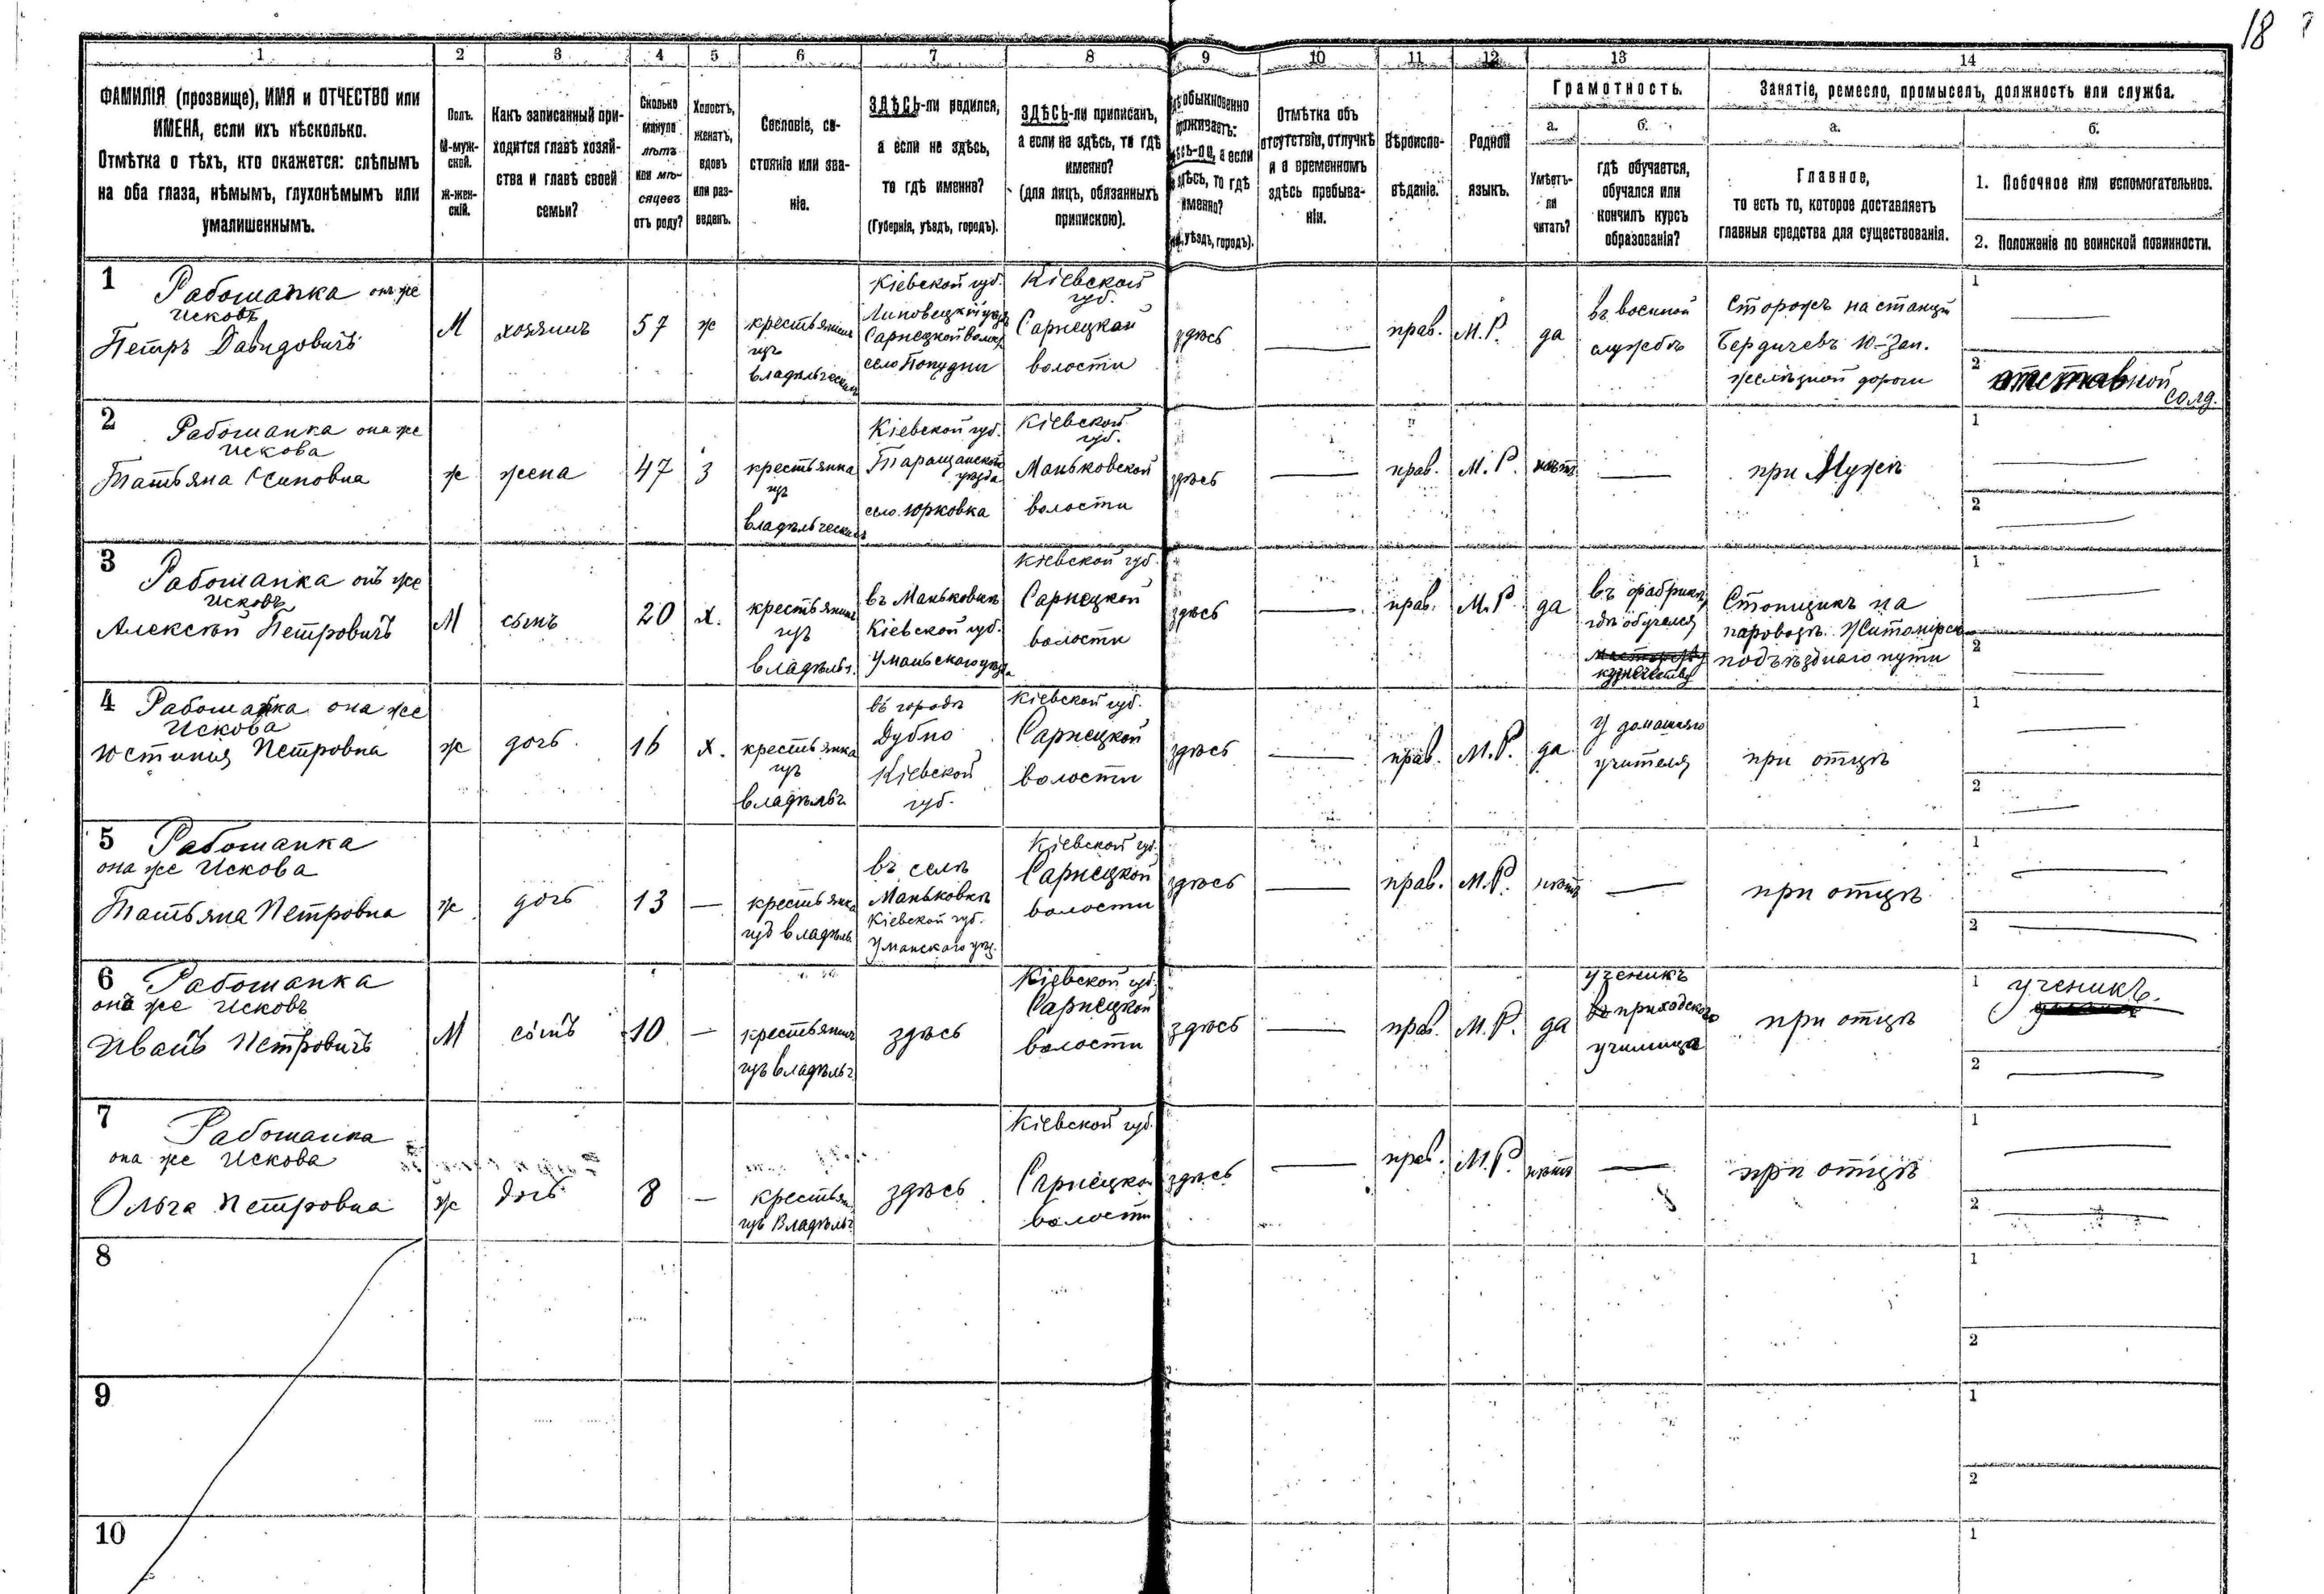 18
1 2 3 4 5 6 7 8 9 10 11 12 13 14
ФАМИЛІЯ (прозвище), ИМЯ и ОТЧЕСТВО или
ИМЕНА, если ихъ нѣсколько.
Отмѣтка о тѣхъ, кто окажется: слѣпымъ
на оба глаза, нѣмымъ, глухонѣмымъ или
умалишеннымъ.
Полъ.
М-муж-
ской.
Ж-жен-
скій.
Какъ записанный при-
ходится главѣ хозяй-
ства и главѣ своей
семьи?
Сколько
минуло
лѣтъ
или мѣ-
сяцевъ
отъ роду?
Холостъ,
женатъ,
вдовъ
или раз-
веденъ.
Сословіе, со-
стояніе или зва-
ніе.
ЗДѢСЬ-ли родился,
а если не здѣсь,
то гдѣ именно?
(Губернія, уѣздъ, городъ).
ЗДѢСЬ-ли приписанъ,
а если не здѣсь, то гдѣ
именно?
(для лицъ, обязанныхъ
припискою).
обыкновенно
проживаетъ:
а если
то гдѣ
именно?
уѣздъ, городъ).
Отмѣтка объ
отсутствіи, отлучкѣ
и о временномъ
здѣсь пребыва-
ніи.
Вѣроиспо-
вѣданіе.
Родной
языкъ.
Грамотность.
а.
Умѣетъ-
ли
читать?
б.
гдѣ обучается,
обучался или
кончилъ курсъ
образованія?
Занятіе, ремесло, промыселъ, должность или служба.
а.
Главное,
то есть то, которое доставляетъ
главныя средства для существованія.
б.
1. Побочное или вспомогательное.
2. Положеніе по воинской повинности.
1
Рабошапка онъ же
Исковъ
Петръ Давидовичъ
М
хозяинъ
57
ж
крестьянинъ
изъ
владѣльческихъ
Кіевской губ.
Липовецкій уѣздъ
Сарнецкой волости
село Попудни
Кіевской
губ.
Сарнецкой
волости
здѣсь
прав.
М.Р.
да
въ военной
службѣ
Сторожъ на станціи
Бердичевъ Ю-Зап.
желѣзной дороги
1
2
отставной
солд.
2
Рабошапка она же
Искова
Татьяна
ж
жена
47
З
крестьянка
изъ
владѣльческихъ
Кіевской губ.
Таращанской
уѣзда
село Юрковка
Кіевской
губ.
Маньковской
волости
здѣсь
прав.
М.Р.
нѣтъ
при Мужѣ
1
2
3
Рабошапка онъ же
Исковъ
Алексѣй Петровичъ
М
сынъ
20
х.
крестьянинъ
изъ
владѣльч.
въ Маньковкѣ
Кіевской губ.
Уманьского уѣзда
Кіевской губ.
Сарнецкой
волости
здѣсь
прав.
М.Р.
да
въ фабрикѣ,
гдѣ обучался
кузнечеству
Стопщикъ на
паровозѣ. Житомірск
подъѣзднаго пути
1
2
4
Рабошапка она же
Искова
Юстинія Петровна
ж
дочь
16
х.
крестьянка
изъ
владѣльч
въ городѣ
Дубно
Кіевской
губ.
Кіевской губ.
Сарнецкой
волости
здѣсь
прав.
М.Р.
да
У домашняго
учителя
при отцѣ
1
2
5
Рабошапка
она же Искова
Татьяна Петровна
ж
дочь
13
крестьянка
изъ владѣль
въ селѣ
Маньковкѣ
Кіевской губ.
Уманскаго уѣз.
Кіевской губ.
Сарнецкой
волости
здѣсь
прав.
М.Р.
нѣтъ
при отцѣ
1
2
6
Рабошапка
онъ же Исковъ
Иванъ Петровичъ
М
сынъ
10
крестьянинъ
изъ владѣльч
здѣсь
Кіевской губ.
Сарнецкой
волости
здѣсь
прав.
М.Р.
да
ученикъ
приходского
училища
при отцѣ
1
ученикъ.
2
7
Рабошапка
она же Искова
Ольга Петровна
ж
дочь
8
крестьян
изъ Владѣльч
здѣсь
Кіевской губ.
Сарнецкой
волости
здѣсь
прав.
М.Р.
нѣтъ
при отцѣ
1
2
8
1
2
9
1
2
10
1